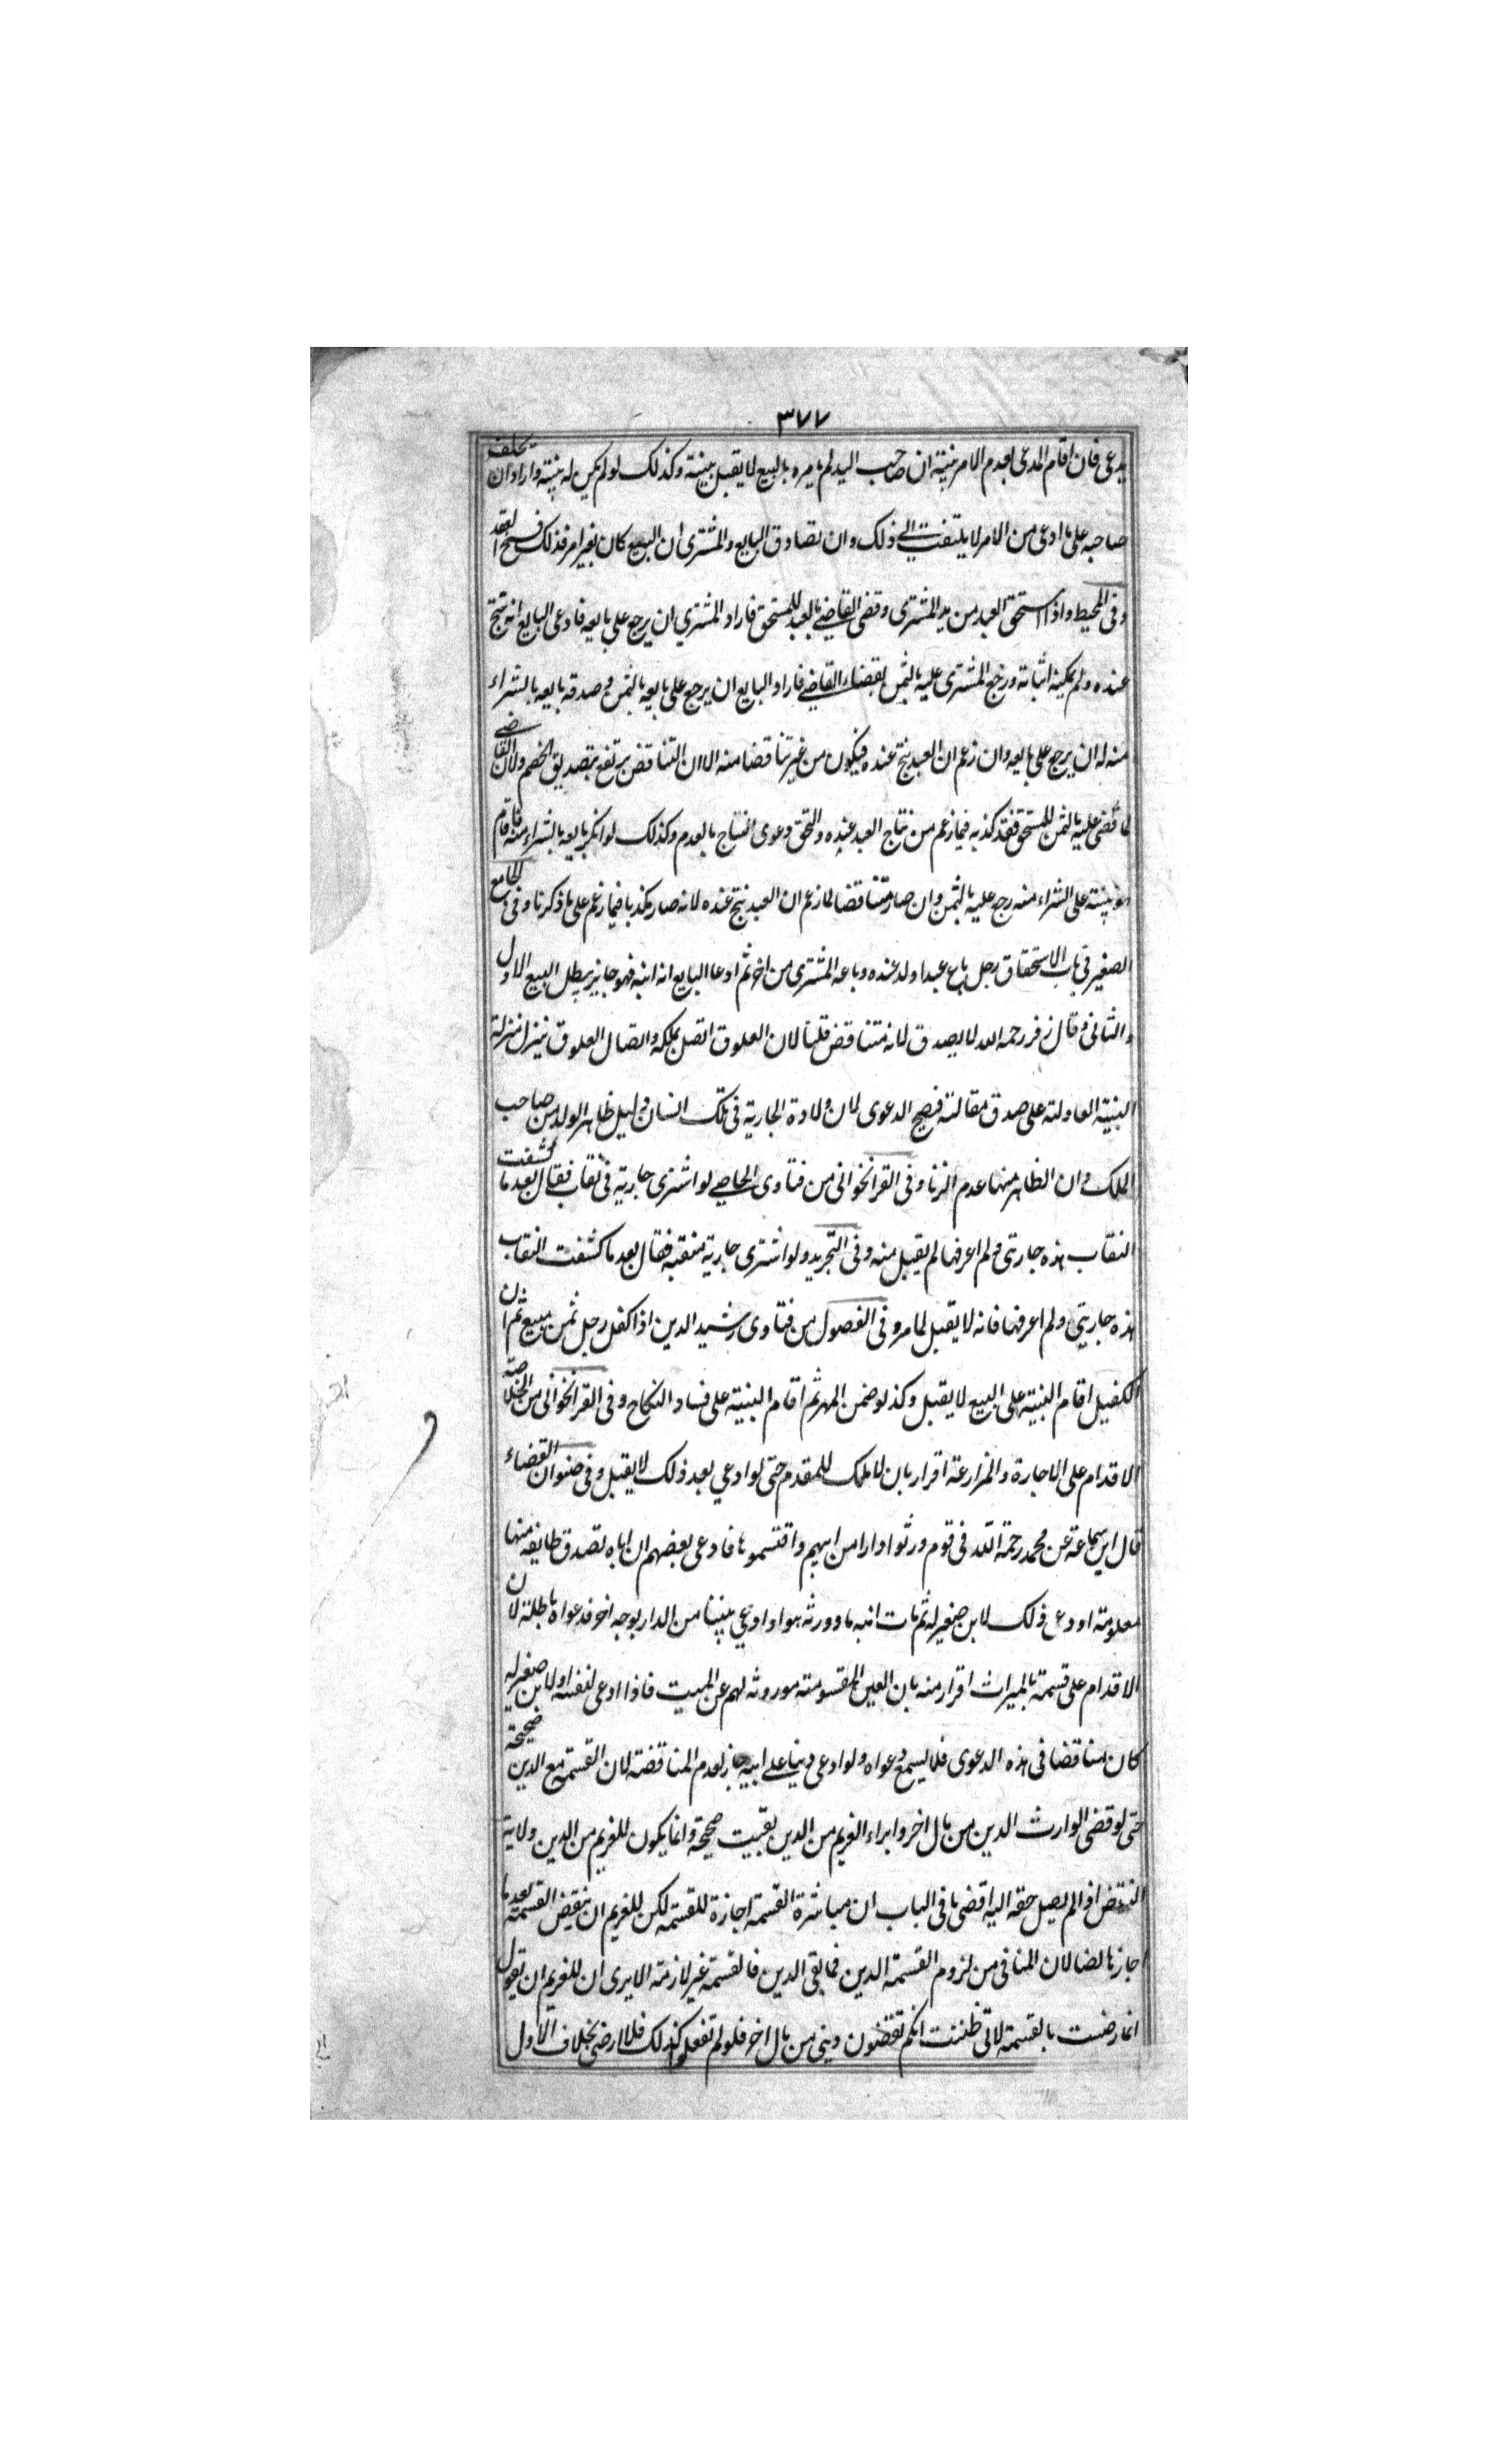 ٣٧٧
يدعى فان اقام المدعى بعدم الامر بينة ان صاحب اليد لم يامره بالبيع لا يقبل بينته وكذلك لو لم يكن له بينة واراد ان يحلف
صاحبه على ما ادعى من الامر لا يلتفت الى ذلك وان تصادق البايع والمشترى ان البيع كان بغير امر فذلك فسخ العقد
وفى المحيط واذا استحق العبد من يد المشترى وقضى القاضى بالعبد للمستحق فاراد المشترى ان يرجع على بايعه فادعى البايع انه نتج
عنده ولم يمكنه اثباته ورجع المشترى عليه بالثمن بقضاء القاضى فاراد البايع ان يرجع على بايعه بالثمن وصدقه بايعه بالشراء
منه له ان يرجع على بايعه وان زعم ان العبد نتج عنده فيكون من غير تناقضا منه الا ان التناقض يرتفع بتصديق الخصم ولان القاضى
لما قضى عليه بالثمن للمستحق فقد كذبه فيما زعم من نتاج العبد عنده والتحق دعوى النتاج بالعدم وكذلك لو انكر بايعه بالشراء منه فاقام
هو بينة على الشراء منه رجع عليه بالثمن وان صار متناقضا لما زعم ان العبد نتج عنده لانه صار مكذبا فيما زعم على ما ذكرنا وفى الجامع
الصغير فى باب الاستحقاق رجل باع عبدا ولد عنده وباعه المشترى من اخر ثم ادعا البايع انه ابنه فهو جايز يبطل البيع الاول
والثانى وقال زفر رحمه الله لا يصدق لانه متناقض قلنا لان العلوق اتصل بملكه واتصال العلوق ينزل منزلة
البينة العادلة على صدق مقالته فيصح الدعوى لان ولادة الجارية فى تلك دليل ظاهر الولد من صاحب
الملك وان الظاهر منها عدم الزنا وفى القراخوانى من فتاوى لو اشترى جارية فى نقاب فقال بعد ما كشفت
النقاب هذه جاريتى ولم اعرفها لم يقبل منه وفى التجريد ولو اشترى جارية منقبة فقال بعد ما كشفت النقاب
هذه جاريتى ولم اعرفها فانه لا يقبل لما مر وفى الفصول من فتاوى رشيد الدين اذا كفل رجل ثمن مبيع ثم ان
الكفيل اقام البينة على البيع لا يقبل وكذا لو ضمن المهر ثم اقام البينة على فساد النكاح وفى القراخوانى من الخلاصة
الاقدام على الاجارة والمزارعة اقرار بان لا ملك للمقدم حتى لو ادعى بعد ذلك لا يقبل وفى صنوان القضاء
قال ابن سماعة عن محمد رحمة الله فى قوم ورثوا دارا من ابيهم واقتسموها فادعى بعضهم ان اباه تصدق طايفة منها
معلومة او ودع ذلك لابن صغير له ثم مات ابنه هذا وورثه هو او ادعى شيئا من الدار بوجه اخر فدعواه باطلة لان
الاقدام على قسمة بالميراث اقرار منه بان العين المقسومة موروثه لهم عن الميت فاذا ادعى لنفسه او لابن صغير له
كان مناقضا فى هذه الدعوى فلا يسمع دعواه ولو ادعى دينا على ابيه جاز لعدم المناقضة لان القسمة مع الدين صحيحة
حتى لو قضى الوارث الدين من مال اخر وابراء الغريم من الدين بقيت صحيحة وانما يكون للغريم من الدين ولاية
النقض اذا لم يصل حقه اليه اقضى ما فى الباب ان مباشرة القسمة اجازة للقسمة لكن للغريم ان ينقض القسمة بعد ما
اجازها لضا لان المنافى من لزوم القسمة الدين فما بقى الدين فالقسمة غير لازمة الا يرى ان للغريم ان يقول
انما رضيت بالقسمة لانى ظننت انكم تقضون دينى من مال اخر فلو لم تفعلوا كذلك فلا ارضى بخلاف الاول